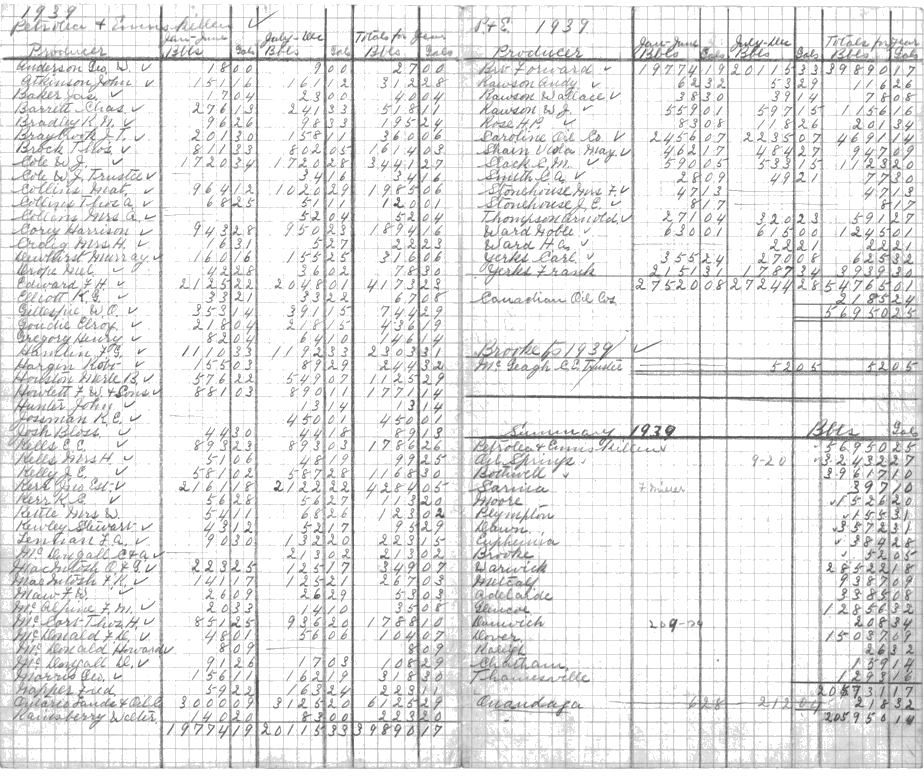 1939
Petrolea & Enniskillen ✓
Jan-June July-Dec Totals for Year
Producer Bbls Gals Bbls Gals Bbls Gals
Anderson Geo. W. ✓ 18 00 9 00 27 00
Atkinson John ✓ 151 16 161 12 312 28
Baker Jas. ✓ 17 04 23 00 40 04
Barrett Chas. ✓ 276 23 241 33
Bradley R.M. ✓ 96 26 98 33 195 24
Braybrook J.T. ✓ 201 30 158 11 360 06
Brock Thos. ✓ 811 33 802 05 1614 03
Cole W.J. ✓ 1720 34 1720 28 3441 27
Cole W.J. Trustee ✓ 34 16 34 16
Collins Meat. ✓ 964 12 1020 29 1985 06
Collins Thos A. ✓ 68 25 51 11 120 01
Collins Mrs A. ✓ 52 04 52 04
Corey Harrison ✓ 943 28 950 23 1894 16
Craig Mrs H. ✓ 16 31 5 27 22 23
Dewhirst Murray ✓ 160 16 155 25 316 06
Drope Mel. ✓ 42 28 36 02 78 30
Edward F.H. ✓ 2125 22 2048 01 4173 23
Elliott K.G. ✓ 33 21 33 22 67 08
Gillespie W.O. ✓ 353 14 391 15 744 29
Goudie Elroy ✓ 218 04 218 15 436 19
Gregory Henry ✓ 82 04 64 10 146 14
Hamlin F.G. ✓ 1110 33 1192 33 2303 31
Hargin Robt ✓ 155 03 89 29 244 32
Houston Merle B. ✓ 576 22 549 07 1125 29
Howlett F.W & Sons ✓ 881 03 890 11 1771 14
Hunter John ✓ 3 14 3 14
Jossman R.E. ✓ 450 01 450 01
Josh Bloss ✓ 44 30 44 18 89 13
Kells C.C. ✓ 893 23 893 03 1786 26
Kells Mrs H. ✓ 51 06 48 19 99 25
Kelly J.C. ✓ 581 02 587 28 1168 30
Kerr Geo Est. ✓ 2161 18 2122 22 4284 05
Kerr K.C. ✓ 56 28 56 27 113 20
Kettle Mrs W. 54 11 68 26 123 02
Kewley Stewart ✓ 43 12 52 17 95 29
Lenihan F.A. ✓ 90 30 132 20 223 15
McDougall C & A ✓ 213 02 213 02
MacIntosh O & G ✓ 223 25 125 17 349 07
MacIntosh F.K. ✓ 141 17 125 21 267 03
Maw F.W. ✓ 26 09 26 29 53 03
McAlpine F.M. ✓ 20 33 14 10 35 08
McCort Thos. H. ✓ 851 25 936 20 1788 10
McDonald F.D. ✓ 48 01 56 06 104 07
McDonald Howard ✓ 8 09 8 09
McDougall D. ✓ 91 26 17 03 108 29
Morris Geo. ✓ 156 11 162 19 318 30
Napper Fred 59 22 163 24 223 11
Ontario Lands & Oil C 3000 09 3125 20 6125 29
Rainsberry Welter ✓ 140 20 83 00 223 20
19774 19 20115 33 39890 17
P&E. 1939
Jan-June July-Dec Totals for Year
Producer Bbls Gals Bbls Gals Bbls Gals
Bro't Forward ✓ 19774 19 20115 33 39890 17
Rawson Andy ✓ 62 32 53 29 116 26
Rawson Wallace ✓ 38 30 39 14 78 08
Rawson W.J. ✓ 559 01 597 15 1156 16
Rose H.P. ✓ 83 08 118 26 201 34
Caroline Oil Co. ✓ 2455 07 2235 07 4691 14
Shain Vida May ✓ 462 17 484 27 947 09
Slack C.M. ✓ 590 05 533 15 1123 20
Smith C.A. ✓ 28 09 49 21 77 30
Stonehouse Mrs F. ✓ 47 13 47 13
Stonehouse J.E. ✓ 8 17 8 17
Thompson Arnold ✓ 271 04 320 23 591 27
Ward Noble ✓ 630 01 615 00 1245 01
Ward H.A. ✓ 22 21 22 21
Yerks Carl ✓ 355 24 270 08 625 32
Yerks Frank 2151 31 1787 34 3939 30
27520 08 27244 28 54765 01
Canadian Oil Cos 2185 24
56950 25
Brooke to 1939 ✓
McGeagh C.E. Trustee 52 05 52 05
Summary 1939 Bbls Gals
Petrolea & Enniskillen ✓ 56950 25
Oil Springs ✓ 9-20 32432 27
Bothwell ✓ 39617 10
Sarnia 397 10
Moore 1526 20
Plympton 155 31
Dawn 3572 31
Euphemia 384 28
Brooke ✓ 52 05
Warwick 2852 18
Metcalf 9387 09
Adelaide 3385 08
Glencoe 12856 32
Dunwich 209-29 208 34
Dover 15037 09
Raleigh 26 32
Chatham 159 14
Thamesville 1293 16
205731 17
Onondaga 6 28 212 04 218 32
205950 14